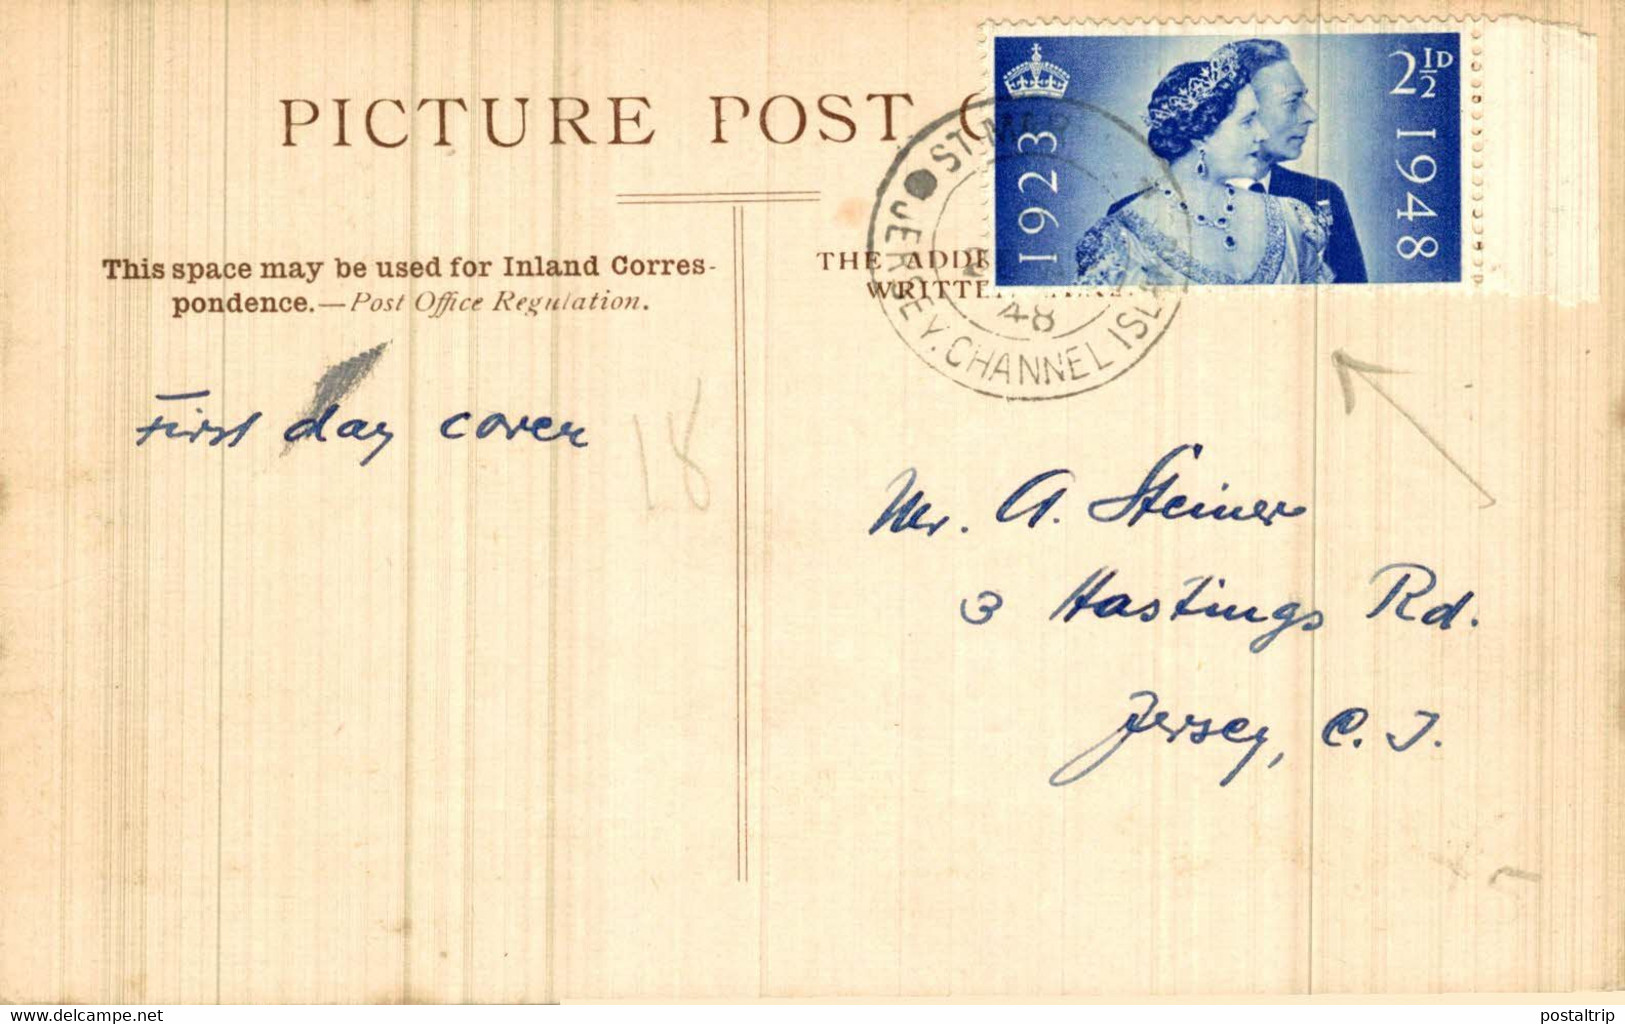 PICTURE POST C
2½D
1923
1948
ST.
JERSEY. CHANNEL ISL
48
This space may be used for Inland Corres-
pondence.—Post Office Regulation.
THE ADDR
WRITTEN
First day cover
18
Mr. A. Steiner
3 Hastings Rd.
Jersey, C. I.
www.delcampe.net
postaltrip